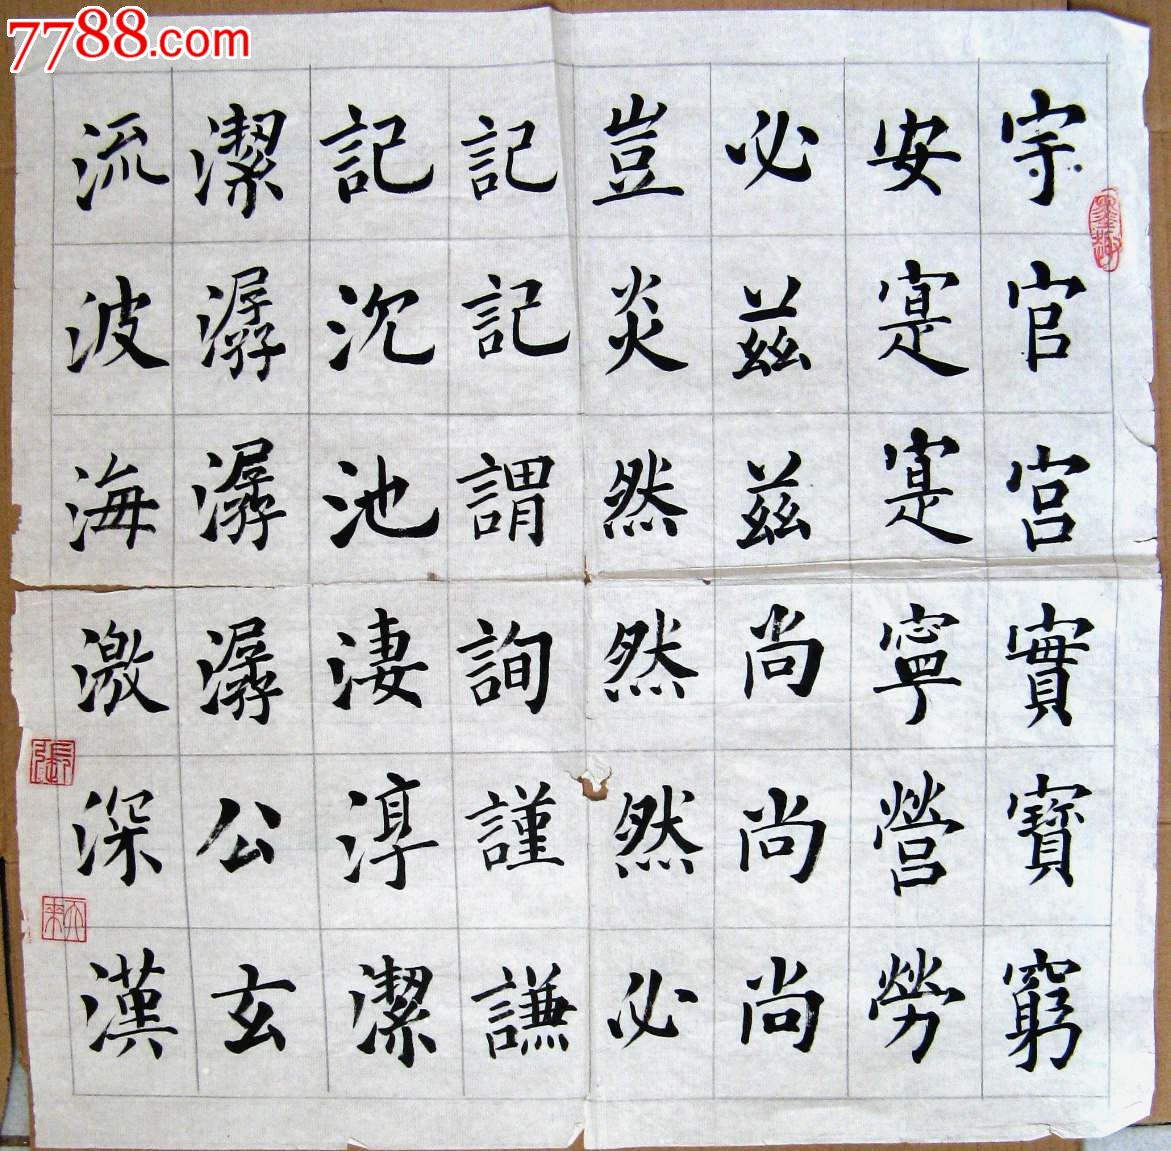 7788.com
宇官宮實寶窮
安寔寔寧營勞
必茲茲尚尚尚
豈炎然然然必
記記謂詢謹謙
記沉池淒淳潔
潔潺潺潺公玄
流波海激深漢
墨趣
張